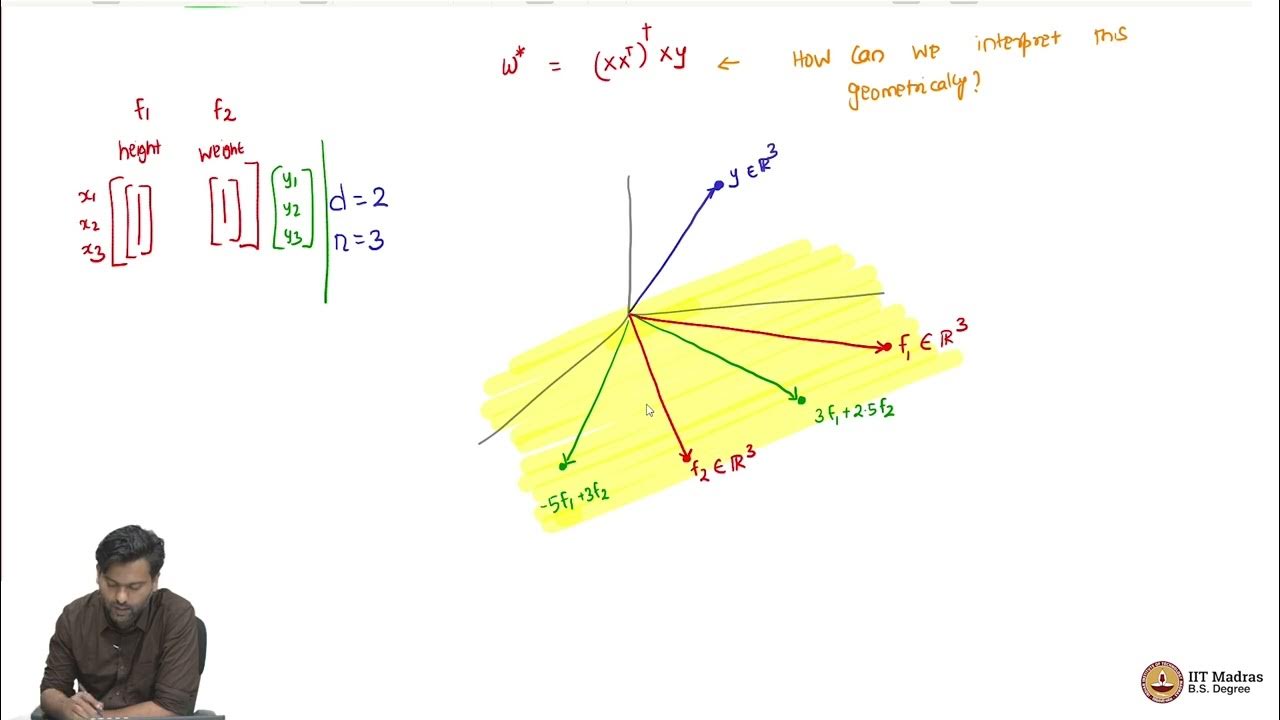 w* = (XX^T)^† Xy ← How can we interpret this
geometrically?
f₁ f₂
height weight
x₁
x₂
x₃
y₁
y₂
y₃
d = 2
n = 3
y ∈ ℝ³
f₁ ∈ ℝ³
3f₁ + 2.5f₂
f₂ ∈ ℝ³
-5f₁ + 3f₂
IIT Madras
B.S. Degree